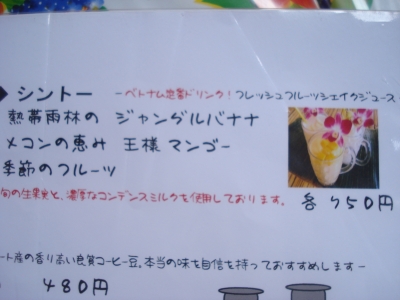 シントー －ベトナム定番ドリンク！フレッシュフルーツシェイクジュース－
熱帯雨林の ジャングルバナナ
メコンの恵み 王様マンゴー
季節のフルーツ
旬の生果実と、濃厚なコンデンスミルクを使用しております。
各750円
ート産の香り高い良質コーヒー豆。本当の味を自信を持っておすすめします－
480円